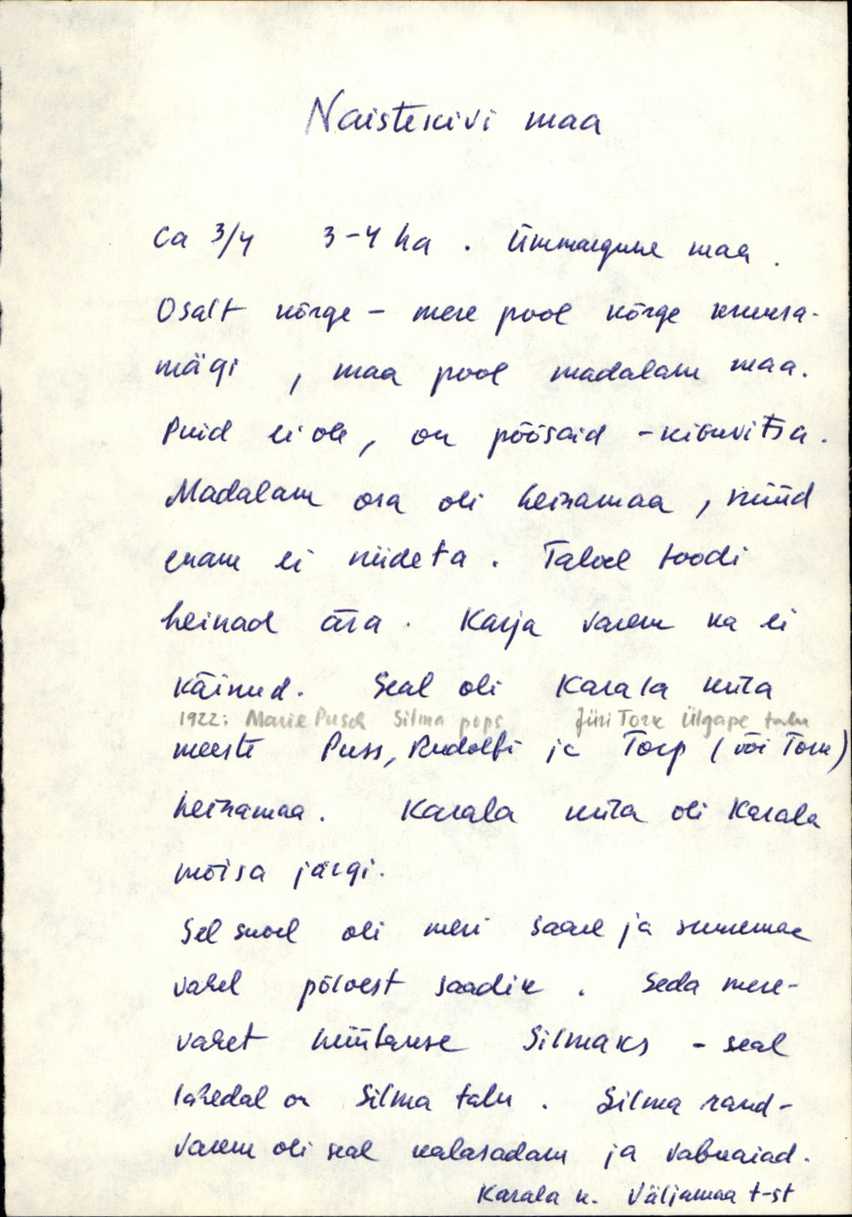 Naistekivi maa
ca 3/4 3-4 ha. Ümmargune maa.
Osalt kõrge - mere pool kõrge kruusa-
mägi, maa pool madalam maa.
Puid ei ole, on põõsaid - kibuvitsa.
Madalam osa oli heinamaa, nüüd
enam ei niideta. Talvel toodi
heinad ära. Karja varem ka ei
käinud. Seal oli Karala küla
1922: Marie Pusch Silma pops Jüri Tork Ülgape talu
meeste Puss, Rudolfi ja Torp (või Tork)
heinamaa. Karala küla oli Karala
mõisa järgi.
Sel suvel oli meri saare ja suuremaa
vahel põlvest saadik. Seda mere-
vahet hüütakse Silmaks - seal
lähedal on Silma talu. Silma rand-
varem oli seal kalasadam ja vabuaiad.
Karala k. Väljamaa t-st